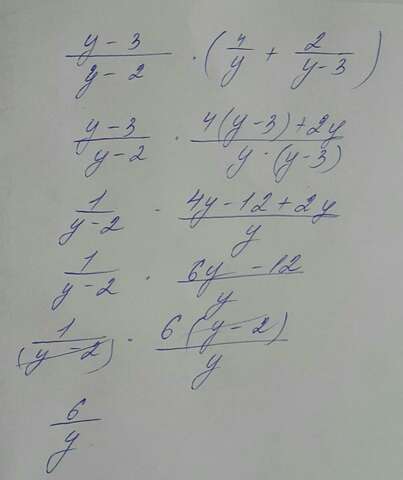 (y-3)/(y-2) · (4/y + 2/(y-3))
(y-3)/(y-2) · (4(y-3)+2y)/(y·(y-3))
1/(y-2) · (4y-12+2y)/y
1/(y-2) · (6y-12)/y
1/(y-2) · (6(y-2))/y
6/y